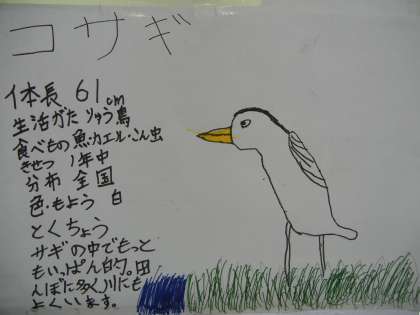 コサギ
体長 61cm
生活がた りゅう鳥
食べもの 魚・カエル・こん虫
きせつ 1年中
分布 全国
色・もよう 白
とくちょう
サギの中でもっと
もいっぱん的。田
んぼに多く川にも
よくいます。